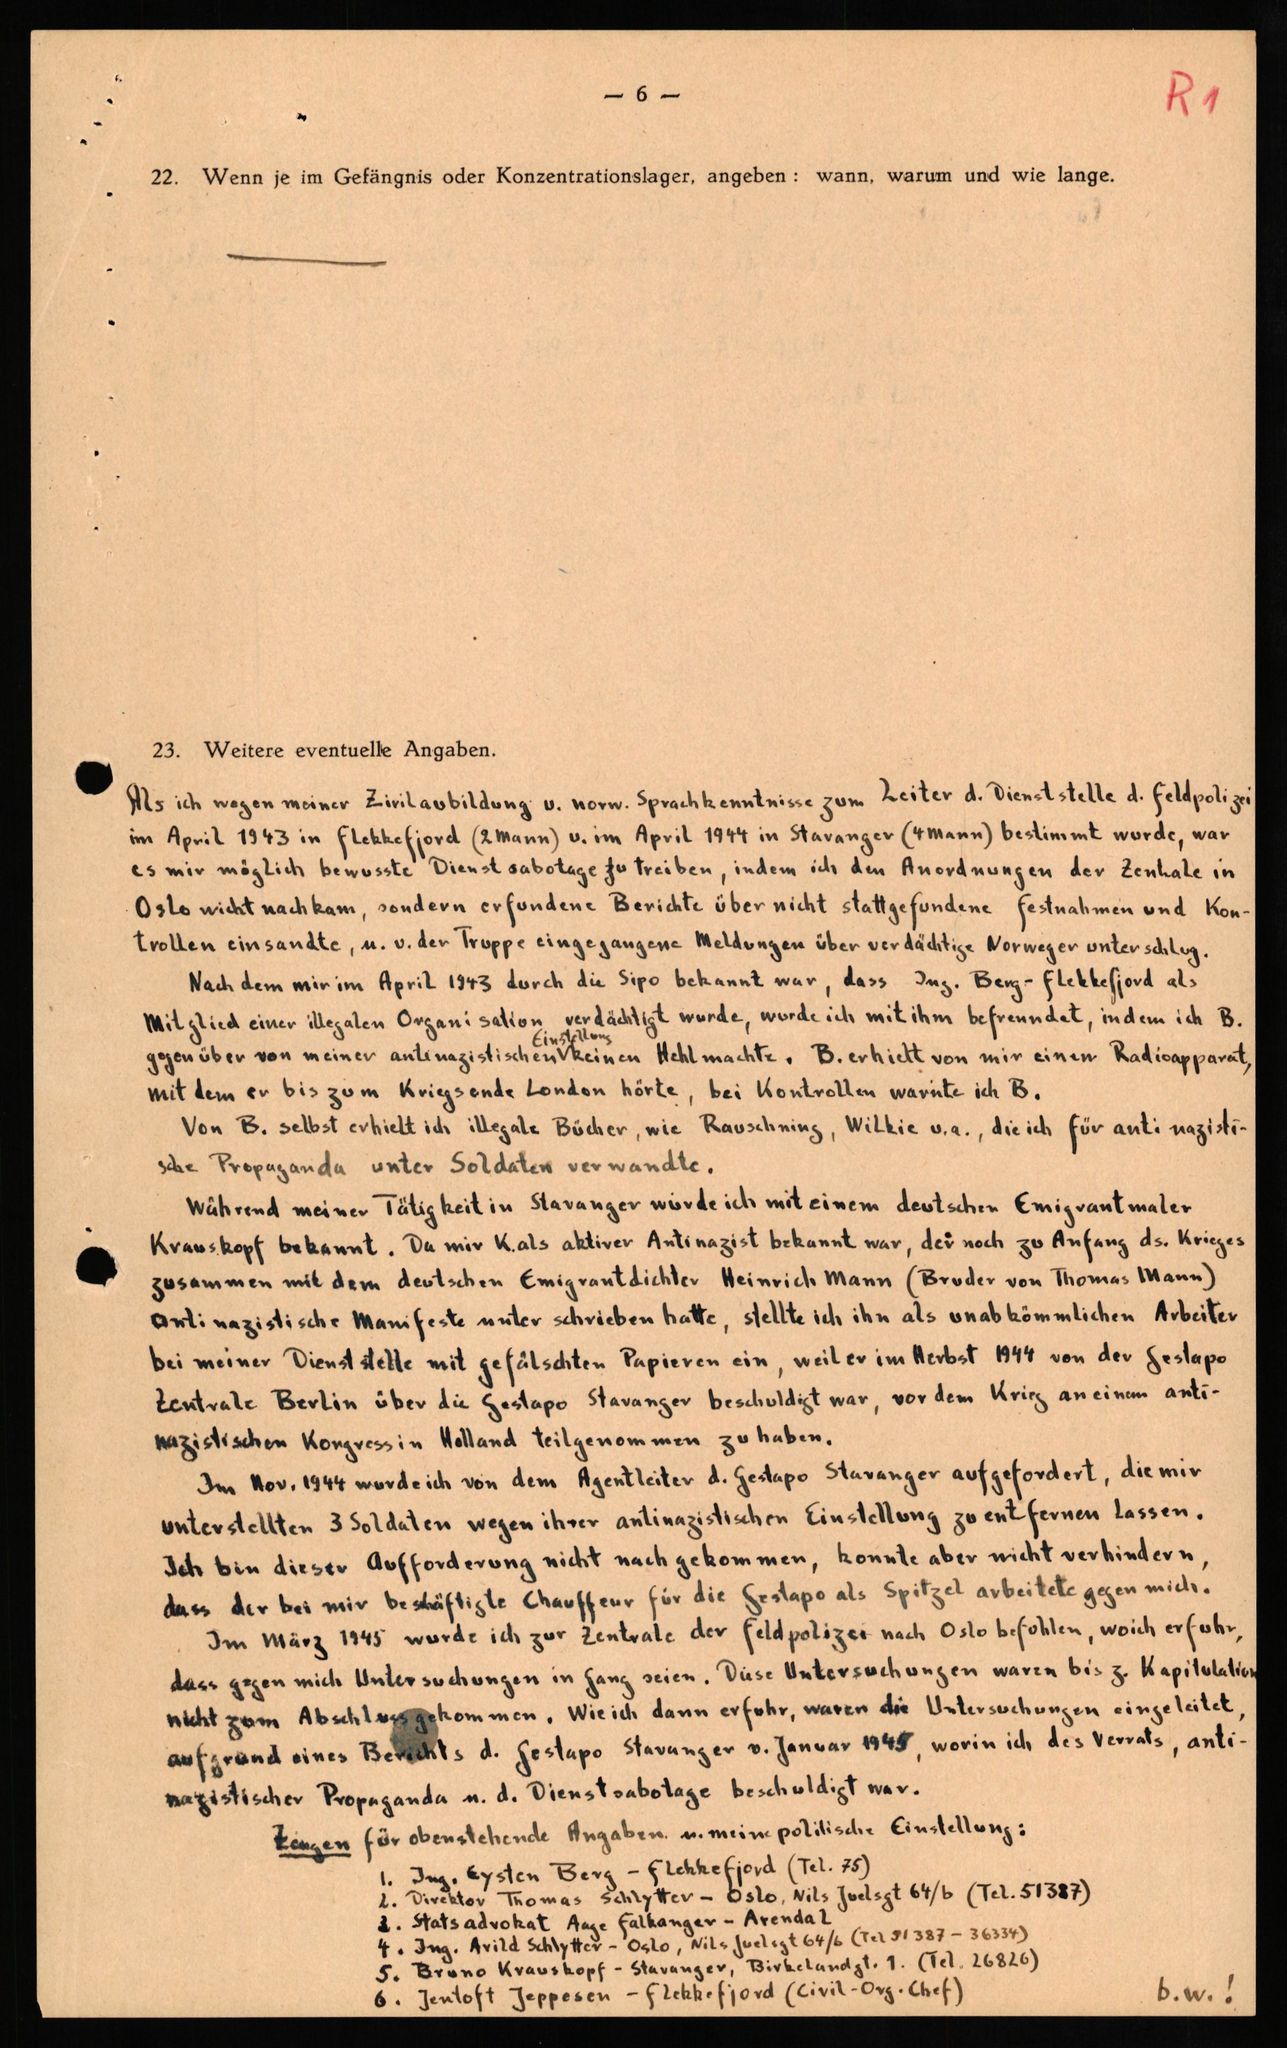 — 6 —
R 1
22. Wenn je im Gefängnis oder Konzentrationslager, angeben: wann, warum und wie lange.
23. Weitere eventuelle Angaben.
Als ich wegen meiner Zivilausbildung u. norw. Sprachkenntnisse zum Leiter d. Dienststelle d. Feldpolizei
im April 1943 in Flekkefjord (2 Mann) u. im April 1944 in Stavanger (4 Mann) bestimmt wurde, war
es mir möglich bewusste Dienstsabotage zu treiben, indem ich den Anordnungen der Zentrale in
Oslo nicht nachkam, sondern erfundene Berichte über nicht stattgefundene Festnahmen und Kon-
trollen einsandte, u. v. der Truppe eingegangene Meldungen über verdächtige Norweger unterschlug.
Nachdem mir im April 1943 durch die Sipo bekannt war, dass Ing. Berg - Flekkefjord als
Mitglied einer illegalen Organisation verdächtigt wurde, wurde ich mit ihm befreundet, indem ich B.
Einstellung
gegenüber von meiner antinazistischen V keinen Hehl machte. B. erhielt von mir einen Radioapparat,
mit dem er bis zum Kriegsende London hörte, bei Kontrollen warnte ich B.
Von B. selbst erhielt ich illegale Bücher, wie Rauschning, Wilkie u.a., die ich für antinazisti-
sche Propaganda unter Soldaten verwandte.
Während meiner Tätigkeit in Stavanger wurde ich mit einem deutschen Emigrantmaler
Krauskopf bekannt. Da mir K. als aktiver Antinazist bekannt war, der noch zu Anfang ds. Krieges
zusammen mit dem deutschen Emigrantdichter Heinrich Mann (Bruder von Thomas Mann)
antinazistische Manifeste unterschrieben hatte, stellte ich ihn als unabkömmlichen Arbeiter
bei meiner Dienststelle mit gefälschten Papieren ein, weil er im Herbst 1944 von der Gestapo
Zentrale Berlin über die Gestapo Stavanger beschuldigt war, vor dem Krieg an einem anti-
nazistischen Kongress in Holland teilgenommen zu haben.
Im Nov. 1944 wurde ich von dem Agentleiter d. Gestapo Stavanger aufgefordert, die mir
unterstellten 3 Soldaten wegen ihrer antinazistischen Einstellung zu entfernen lassen.
Ich bin dieser Aufforderung nicht nachgekommen, konnte aber nicht verhindern,
dass der bei mir beschäftigte Chauffeur für die Gestapo als Spitzel arbeitete gegen mich.
Im März 1945 wurde ich zur Zentrale der Feldpolizei nach Oslo befohlen, wo ich erfuhr,
dass gegen mich Untersuchungen in Gang seien. Diese Untersuchungen waren bis z. Kapitulation
nicht zum Abschluss gekommen. Wie ich dann erfuhr, waren die Untersuchungen eingeleitet,
aufgrund eines Berichts d. Gestapo Stavanger v. Januar 1945, worin ich des Verrats, anti-
nazistischer Propaganda u. d. Dienstsabotage beschuldigt war.
Zeugen für obenstehende Angaben u. meine politische Einstellung:
1. Ing. Eysten Berg - Flekkefjord (Tel. 75)
2. Direktor Thomas Schlytter - Oslo, Nils Juelsgt 64/b (Tel. 51387)
3. Statsadvokat Aage Falkanger - Arendal
4. Ing. Arild Schlytter - Oslo, Nils Juelsgt 64/b (Tel 51387 - 36334)
5. Bruno Krauskopf - Stavanger, Birkelandgt. 1. (Tel. 26826)
6. Jentoft Jeppesen - Flekkefjord (Civil-Org.-Chef)
b.w.!